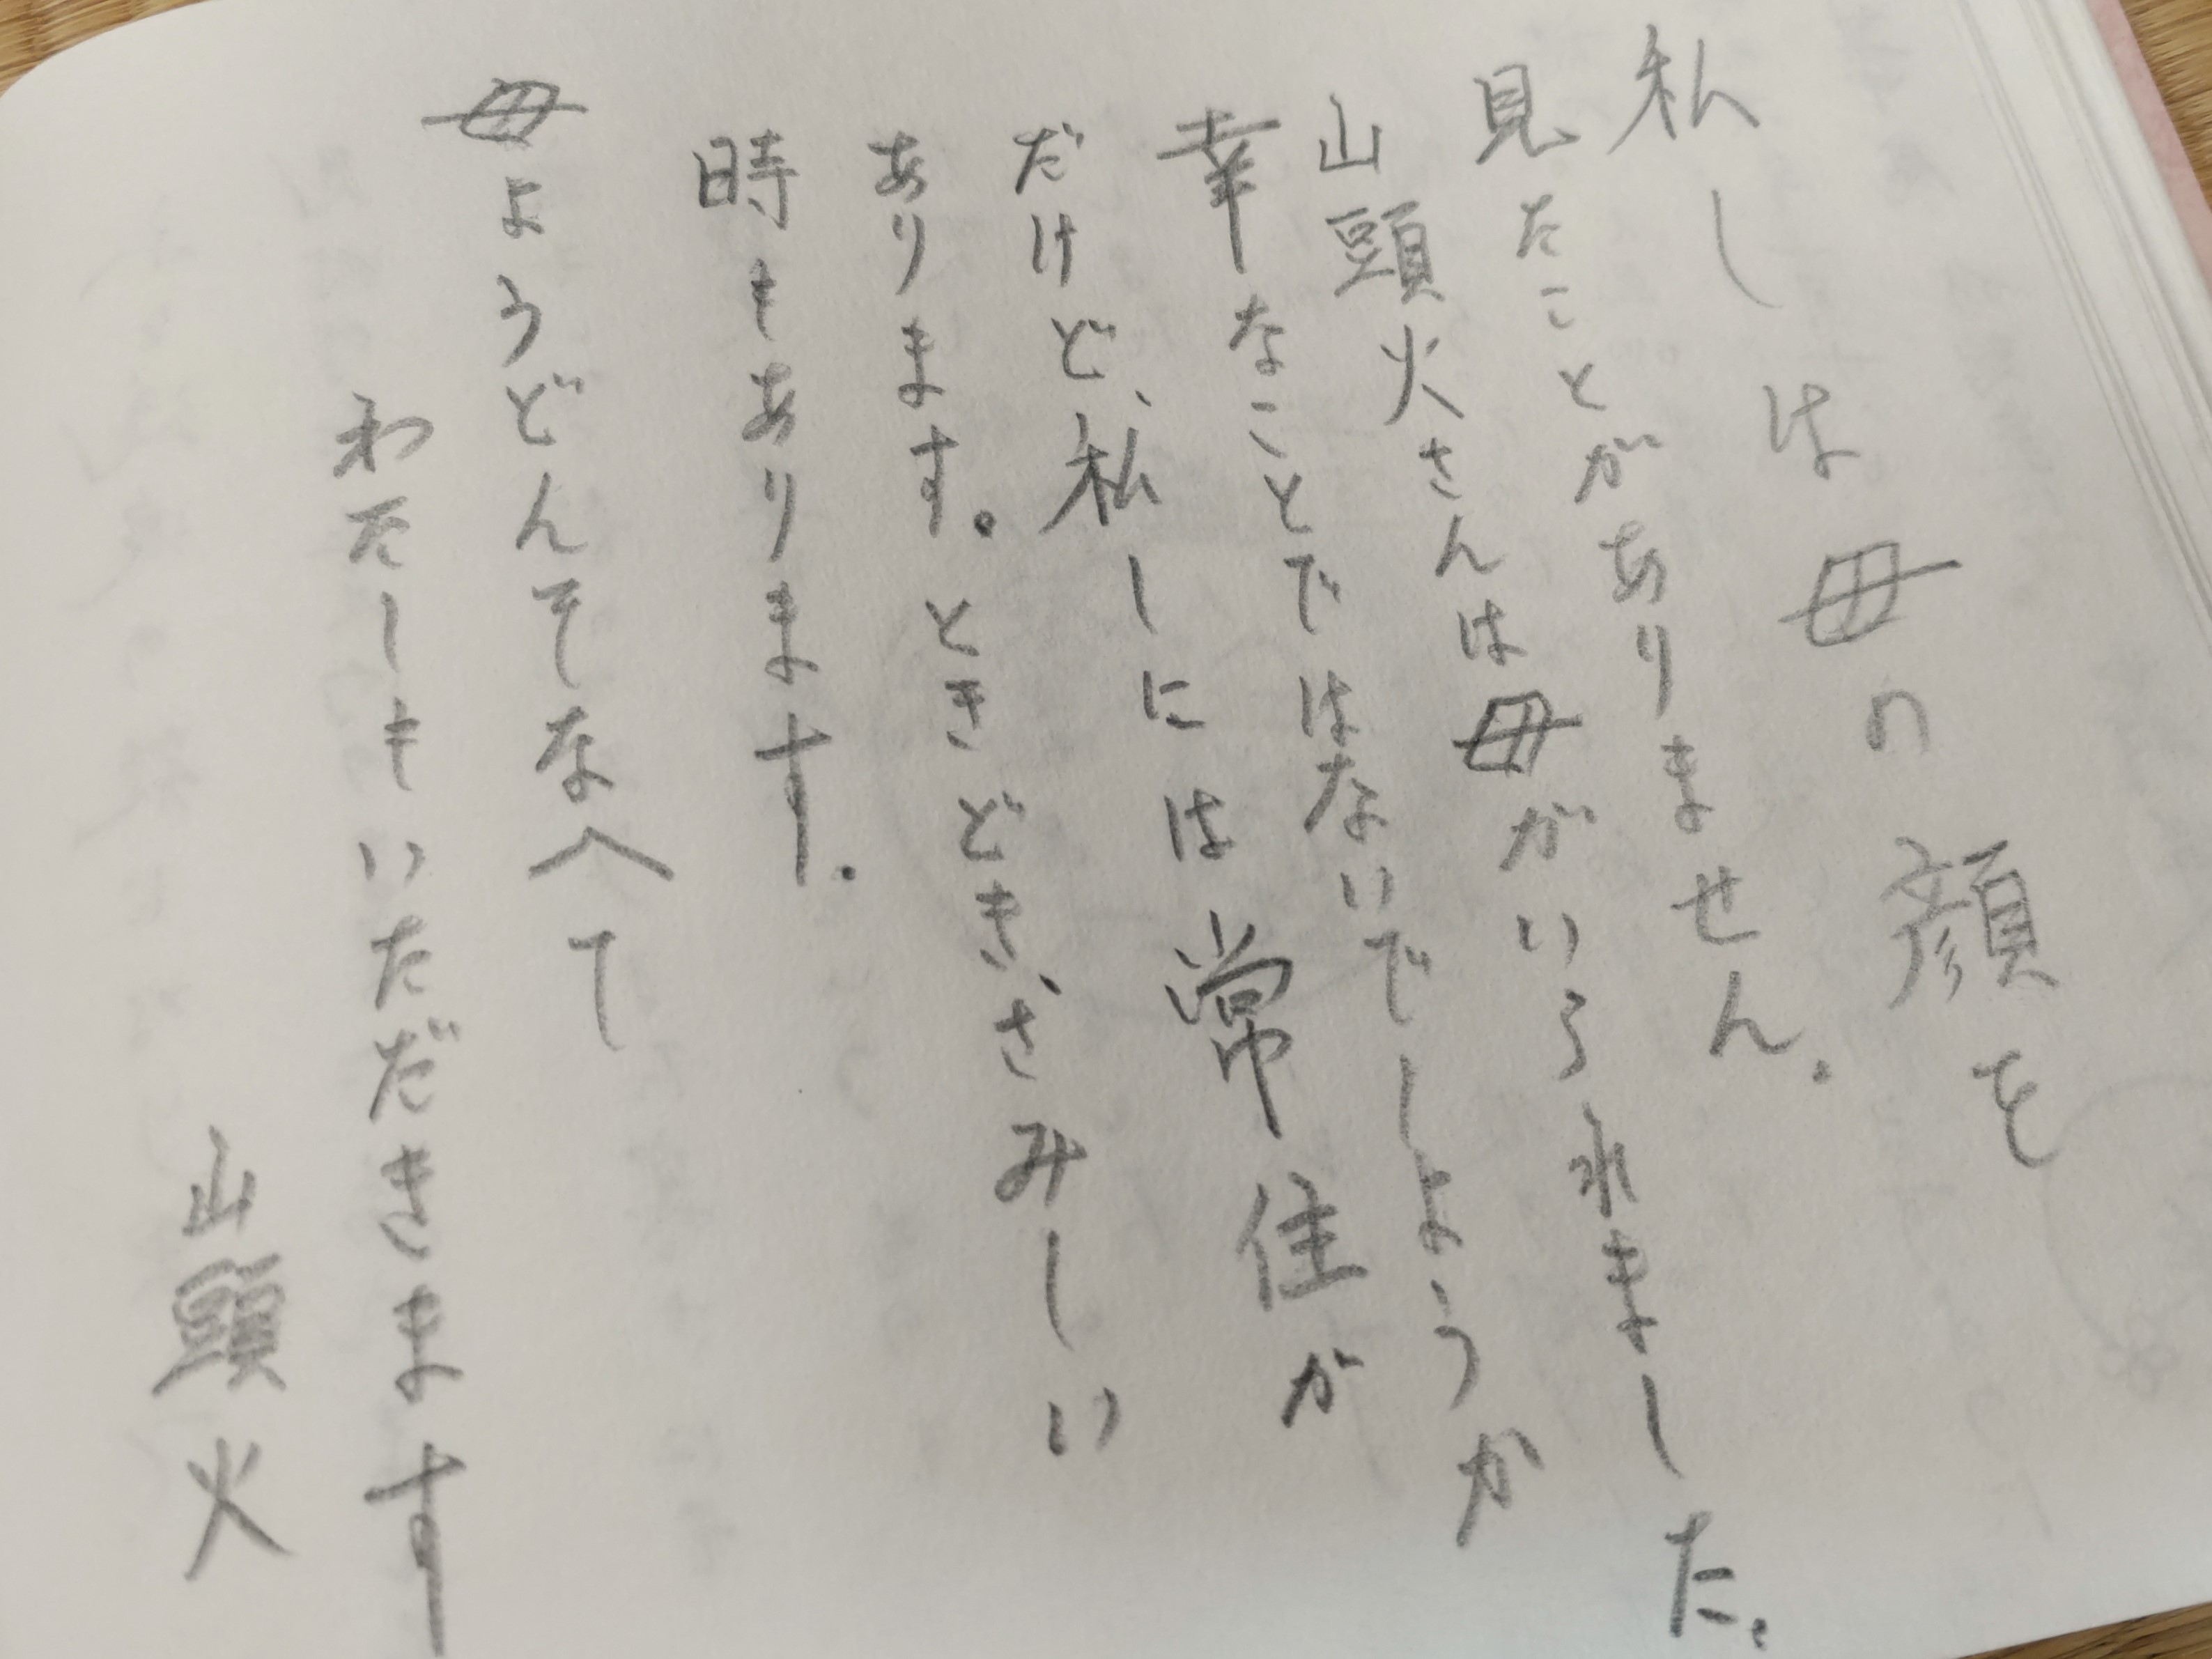 私しは母の顔を
見たことがありません。
山頭火さんは母がいられました。
幸なことではないでしようか
だけど、私しには常住が
あります。ときどき、さみしい
時もあります。
母ようどんそなへて
わたしもいただきます
山頭火